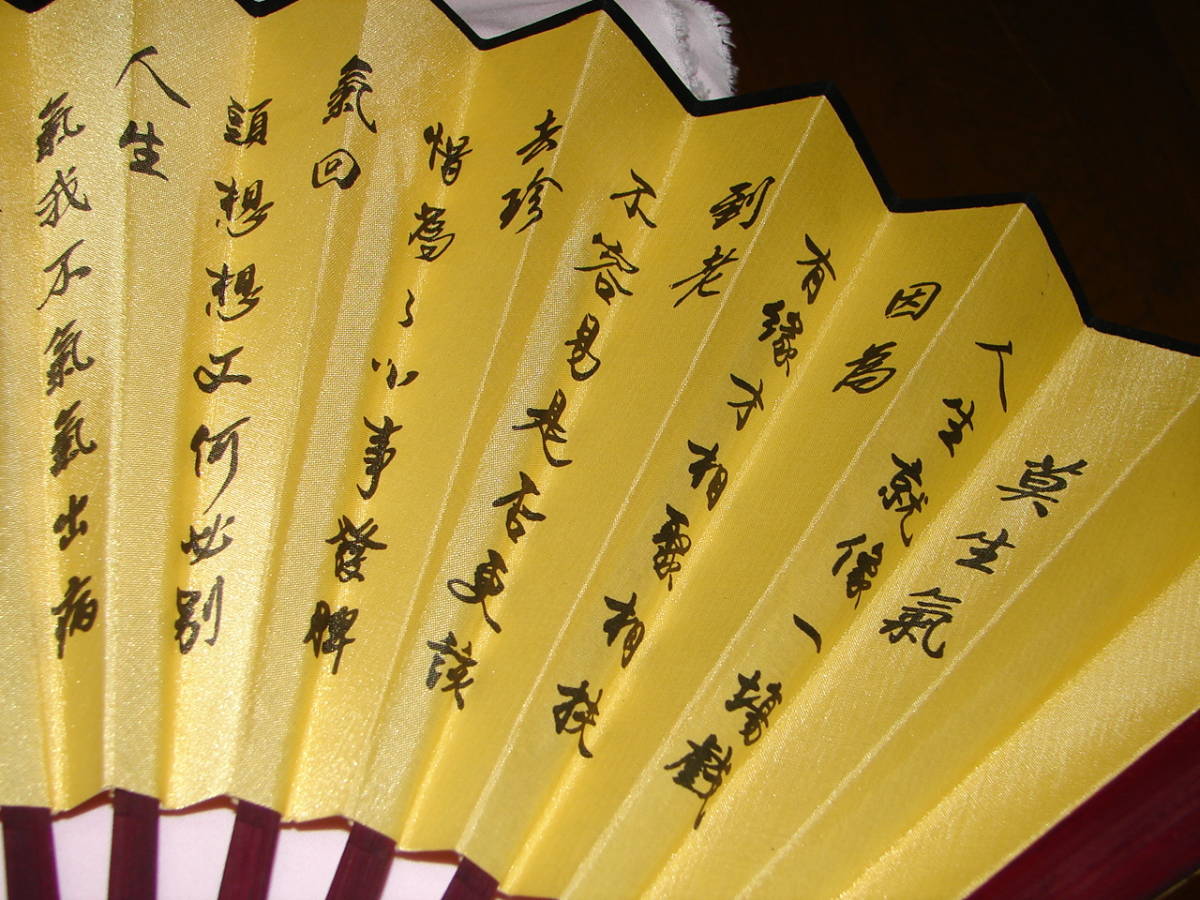 莫生氣
人生就像一場戲
因為
有緣才相聚相扶
到老
不容易是否更該
去珍
惜為了小事發脾
氣回
頭想想又何必別
人生
氣我不氣氣出病